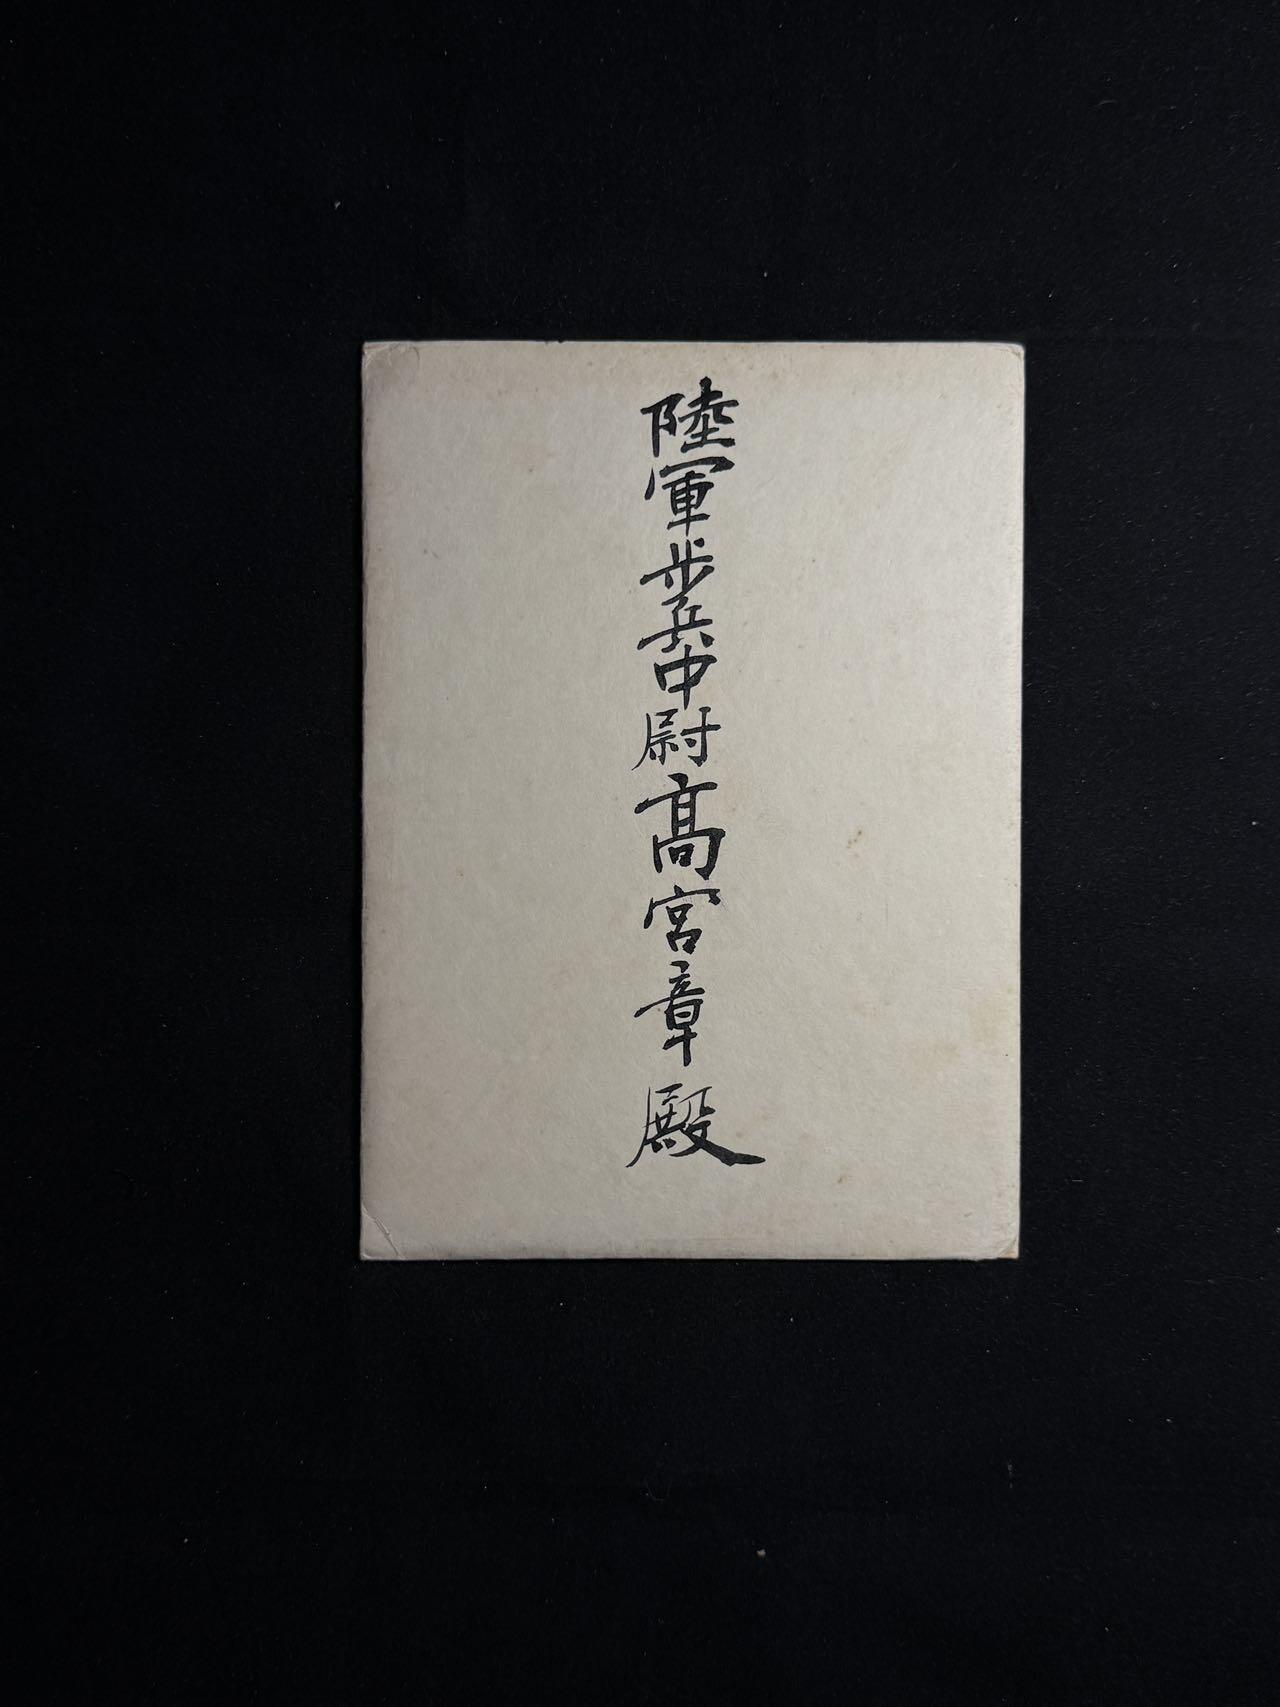 陸軍歩兵中尉髙宮章殿